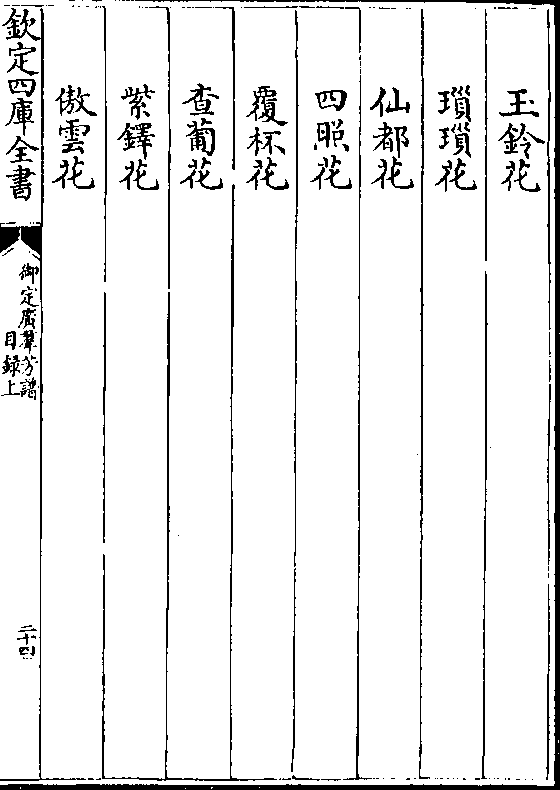 玉鈴花
瑣瑣花
仙都花
四照花
覆杯花
查葡花
紫鐸花
傲雲花
欽定四庫全書
御定廣羣芳譜
目錄上
二十四